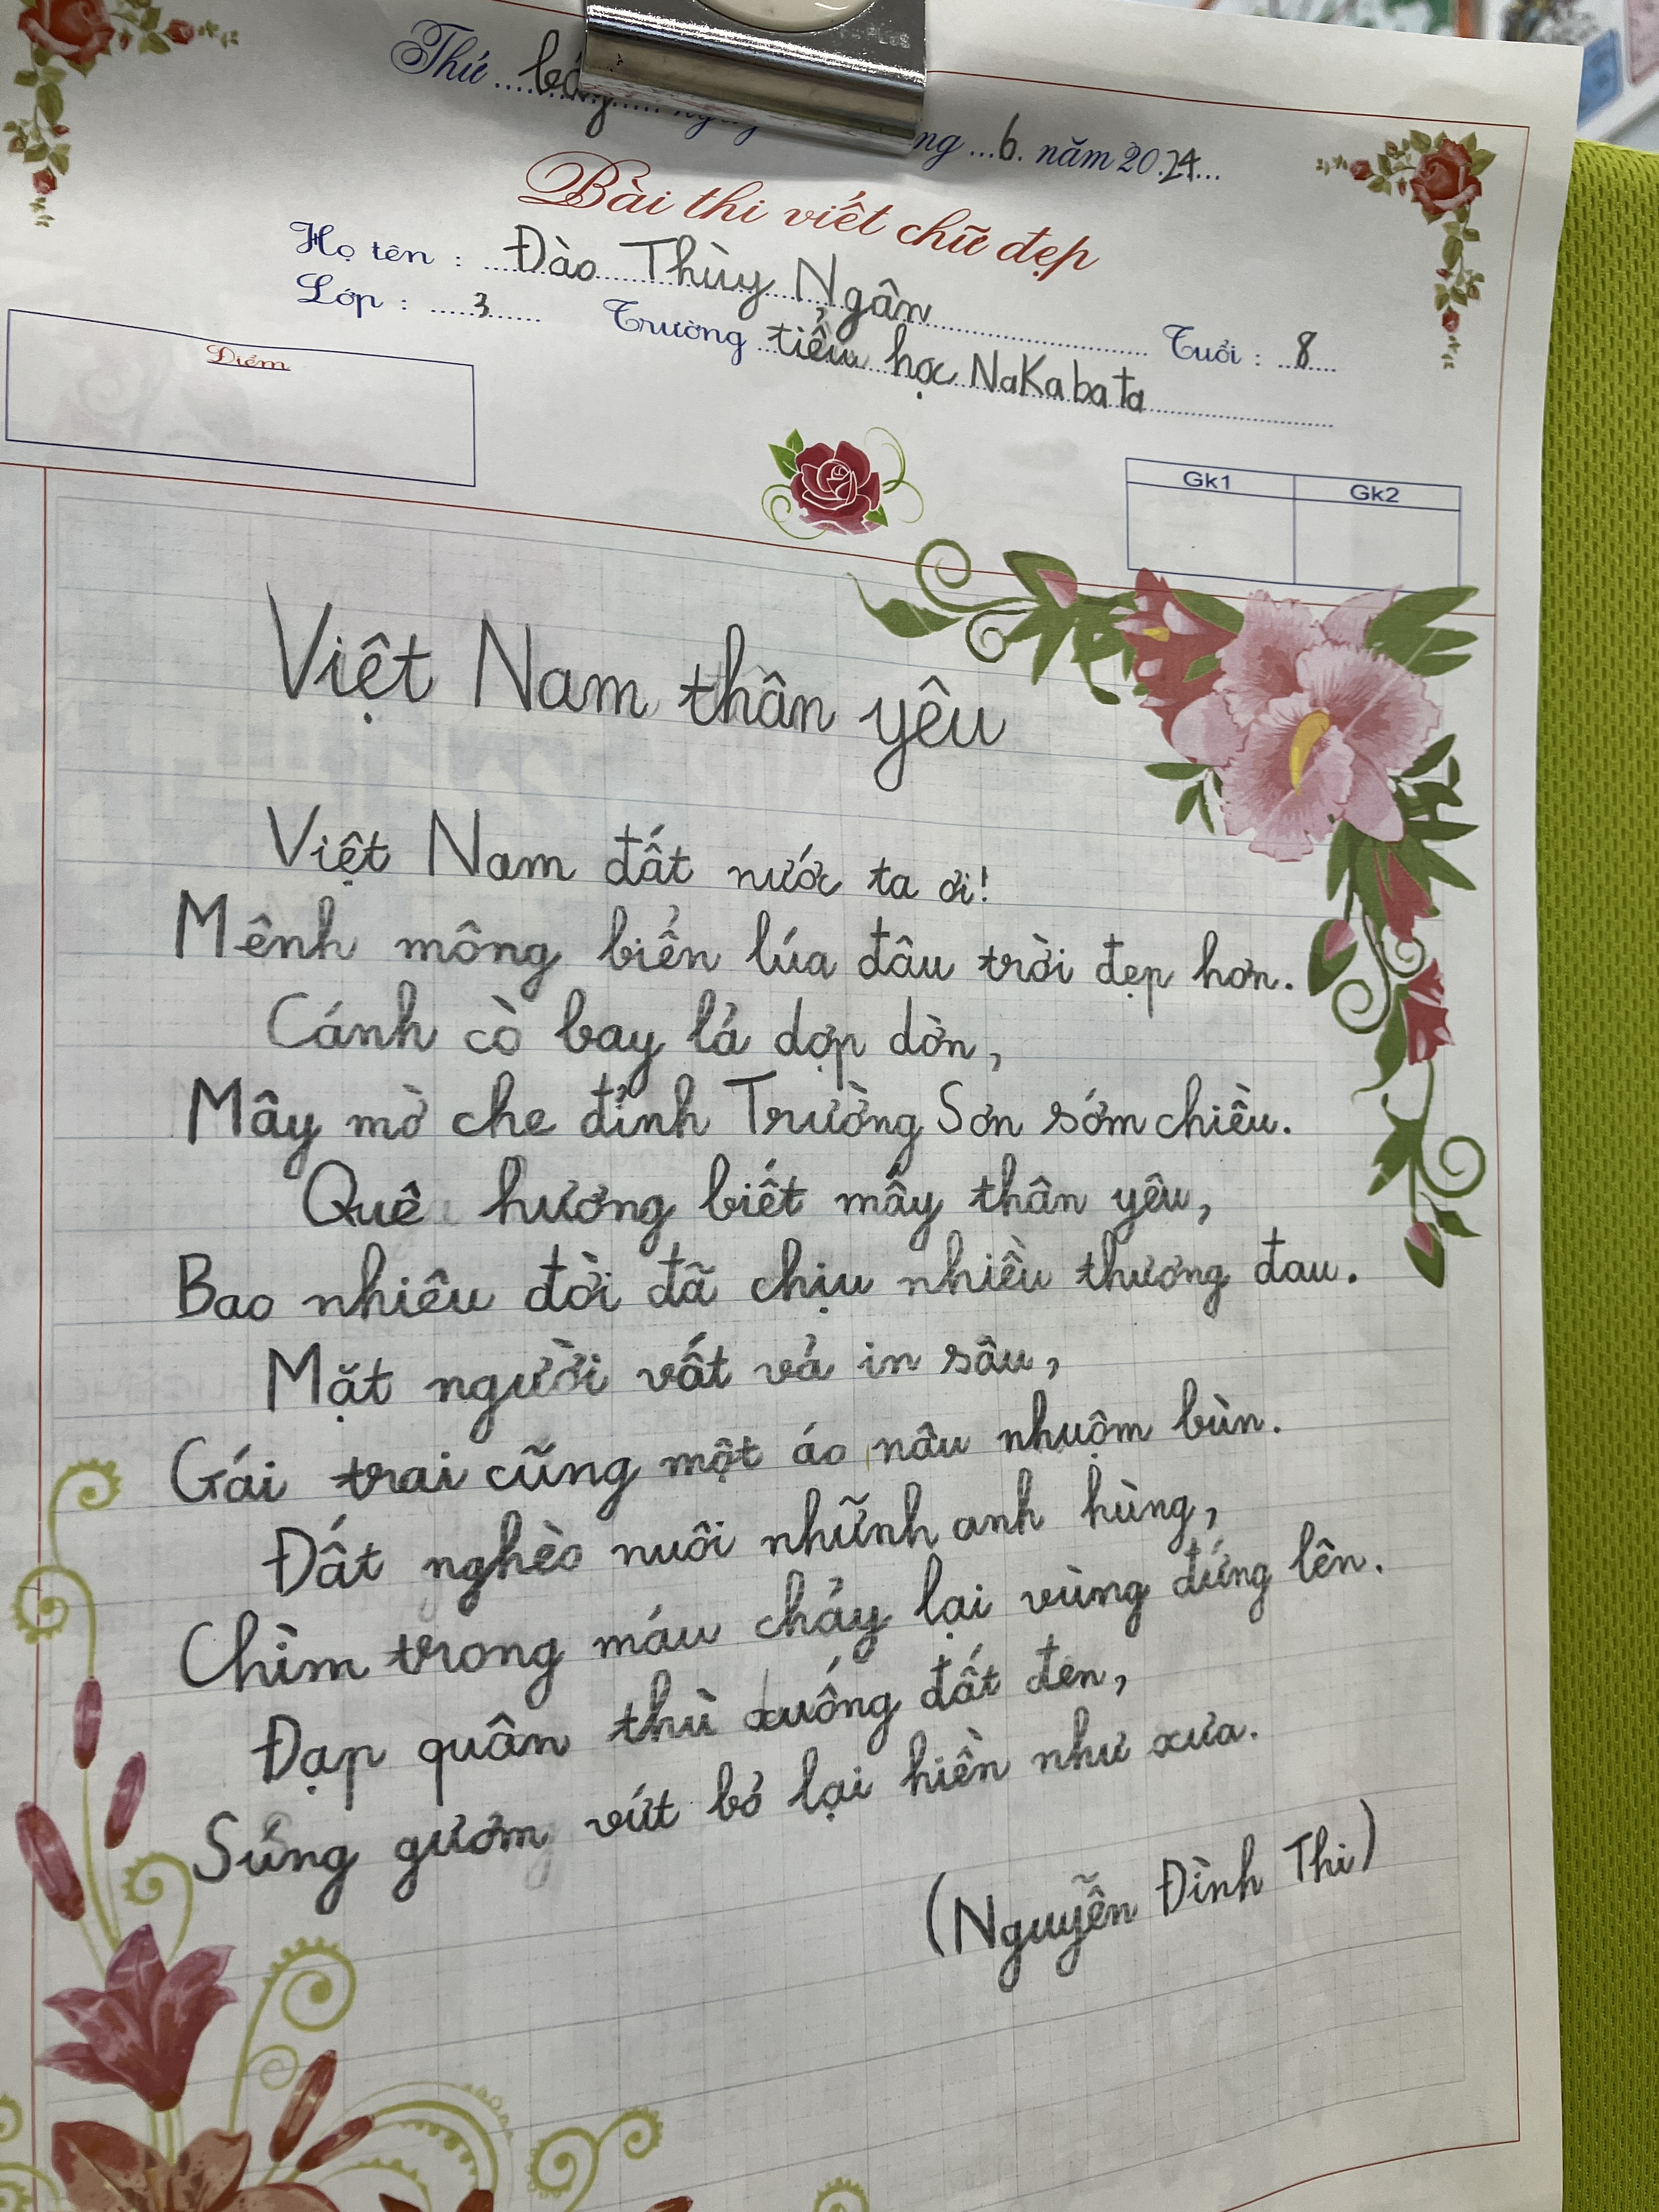 Thứ bảy ng 6. năm 2024
Bài thi viết chữ đẹp
Họ tên : Đào Thùy Ngân Tuổi : 8
Lớp : 3 Trường tiểu học NaKabata
Điểm
Gk1 Gk2
Việt Nam thân yêu
Việt Nam đất nước ta ơi!
Mênh mông biển lúa đâu trời đẹp hơn.
Cánh cò bay lả dợp dờn,
Mây mờ che đỉnh Trường Sơn sớm chiều.
Quê hương biết mấy thân yêu,
Bao nhiêu đời đã chịu nhiều thương đau.
Mặt người vất vả in sâu,
Gái trai cũng một áo nâu nhuộm bùn.
Đất nghèo nuôi nhữnh anh hùng,
Chìm trong máu chảy lại vùng đứng lên.
Đạp quân thù xuống đất đen,
Súng gươm vứt bỏ lại hiền như xưa.
(Nguyễn Đình Thi)